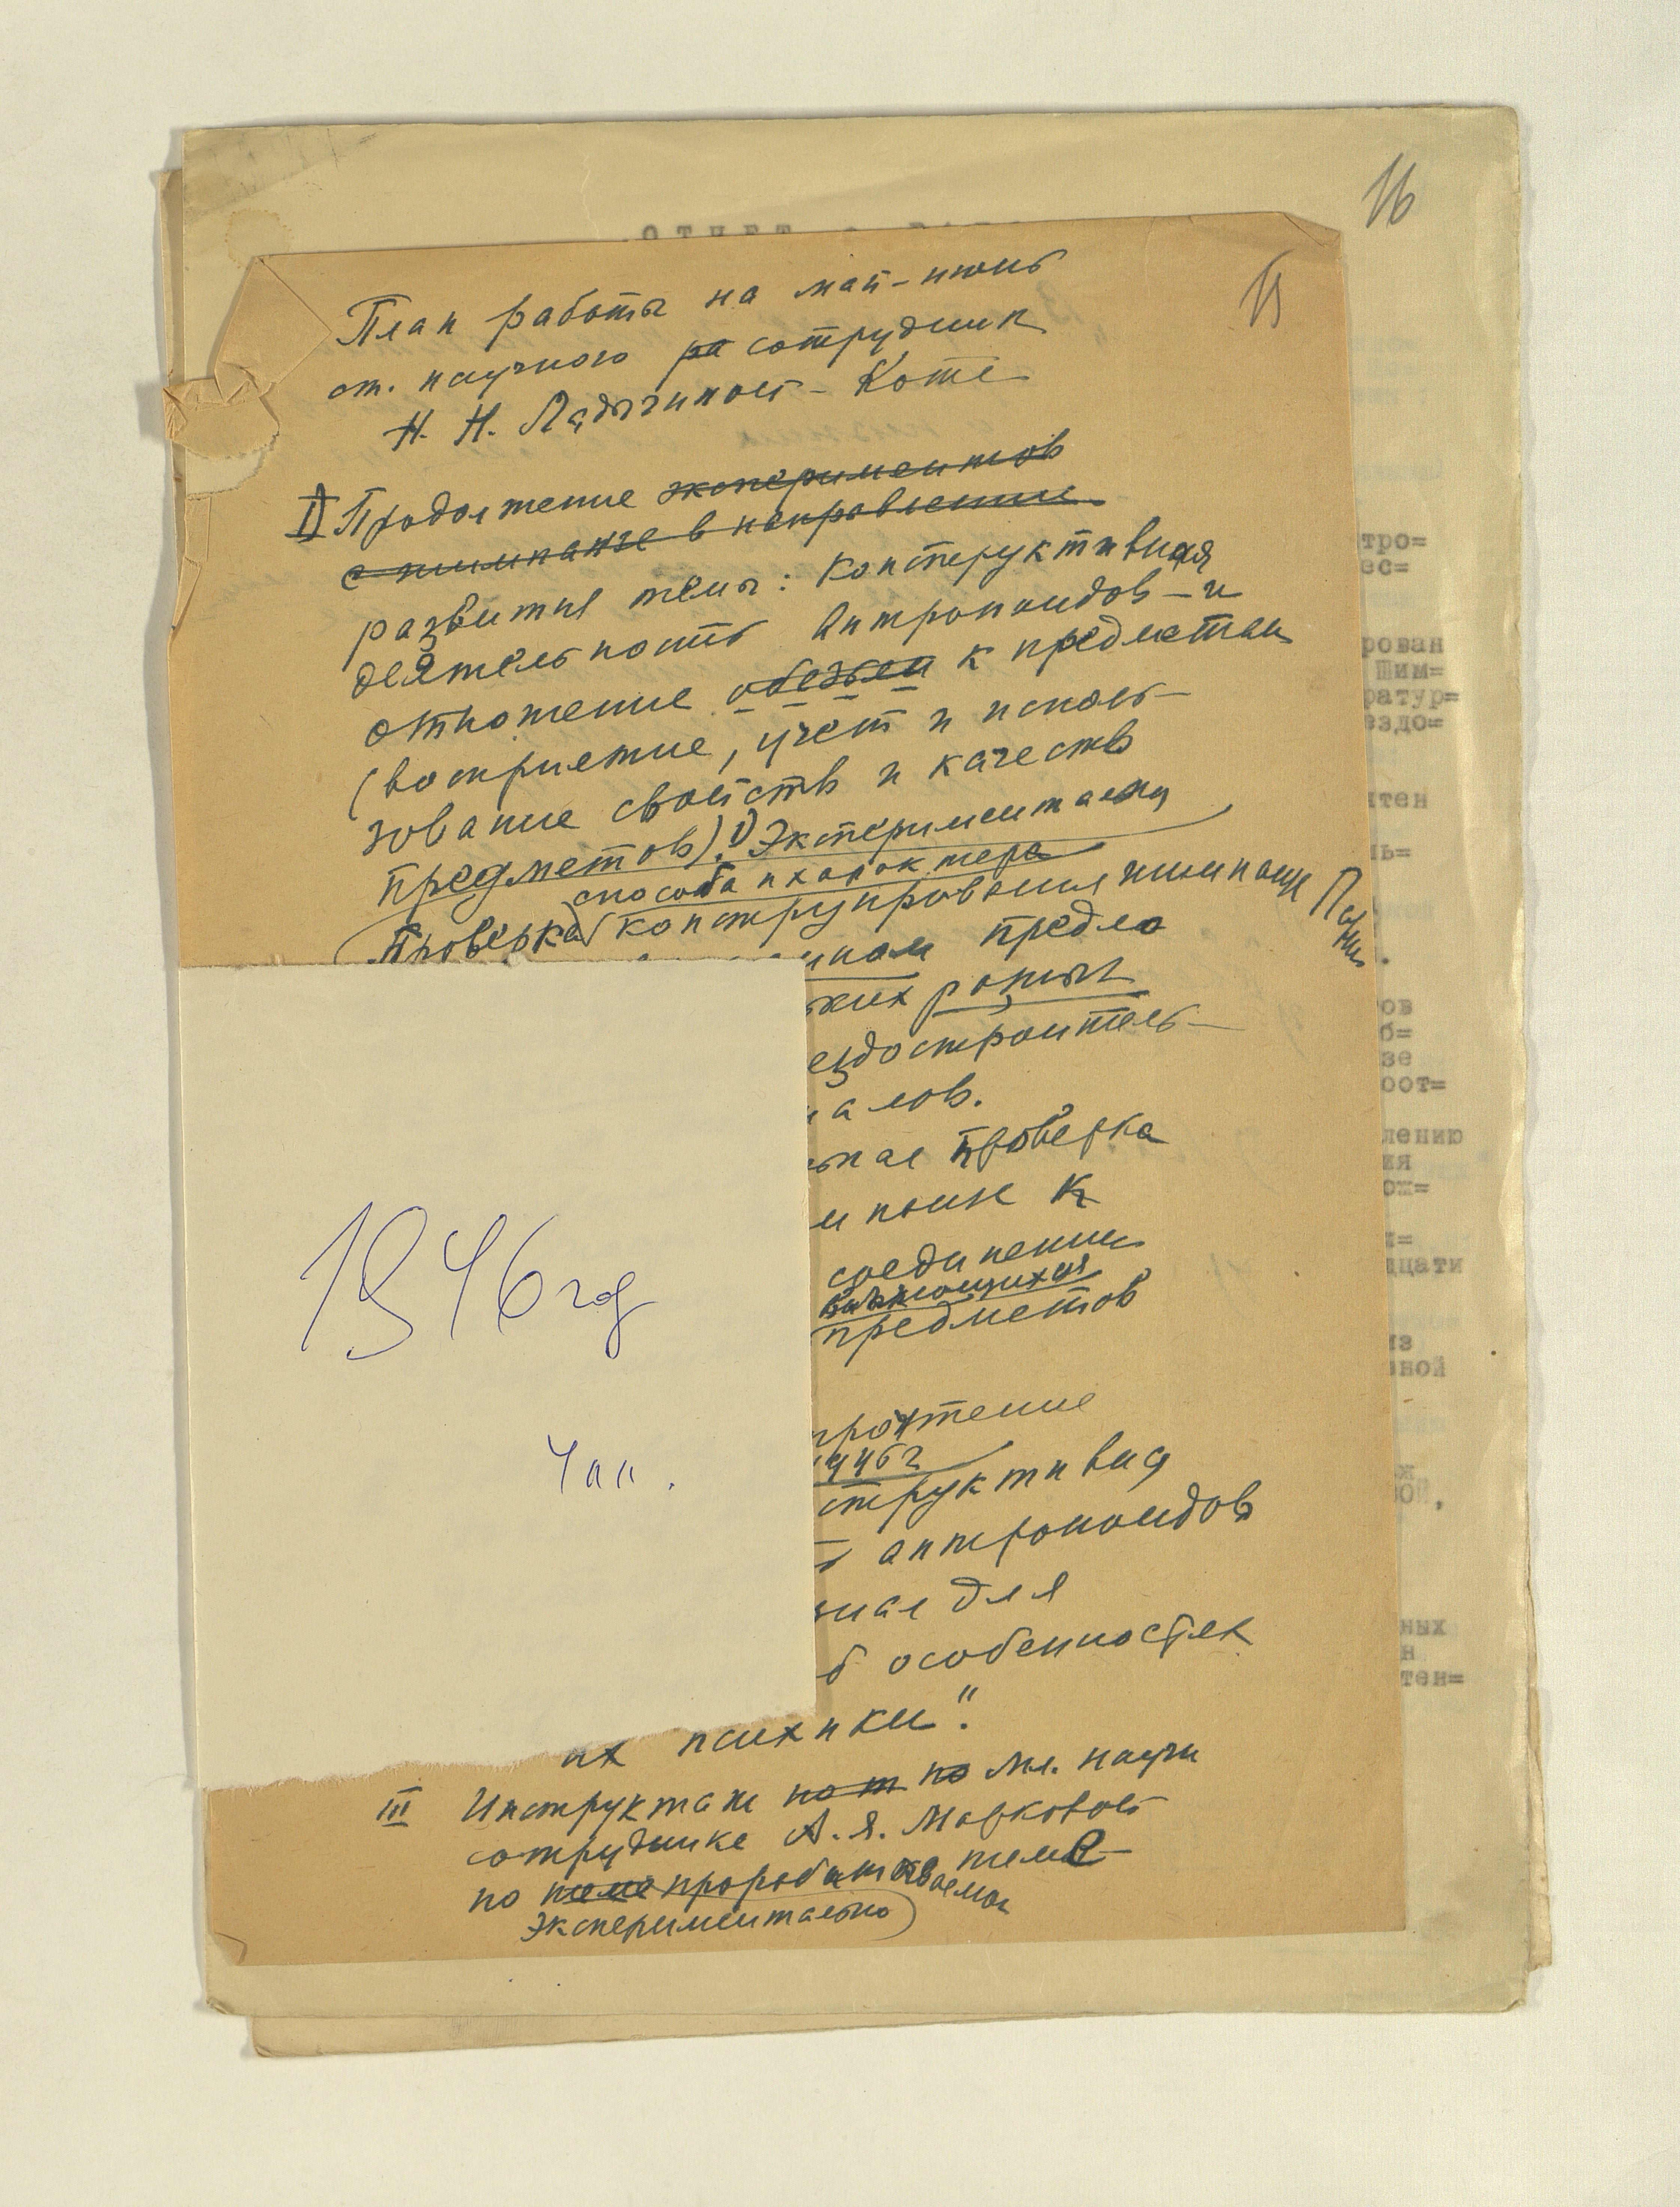 16
ОТЧЕТ
15
План работы на май-июнь
ст. научного ра сотрудник
Н. Н. Ладыгиной-Котс
I) Продолжение экспериментов
с шимпанзе в направлении
развития темы: Конструктивная
деятельность Антропоидов - и
отношение обезьян к предметам
(восприятие, учет и исполь-
зование свойств и качеств
предметов). 1) Экспериментальная
способа и характера
Проверка конструирования шимпанзе Парис
предло
ких
ездостроитель-
алов.
ная проверка
к
соединению
предметов
1946 год
1946 г
структивная
4 лл.
антропоидов
для
б особенностях
их психики".
III Инструктаж по т по Мл. научн
сотруднике А. Я. Марковой
по теме прорабатываемой теме
экспериментально
тро=
ес=
рован
Шим=
ратур=
ездо=
тен
ль=
ов
б=
зе
оот=
лению
ия
ож=
дцати
из
вной
ных
н
тен=